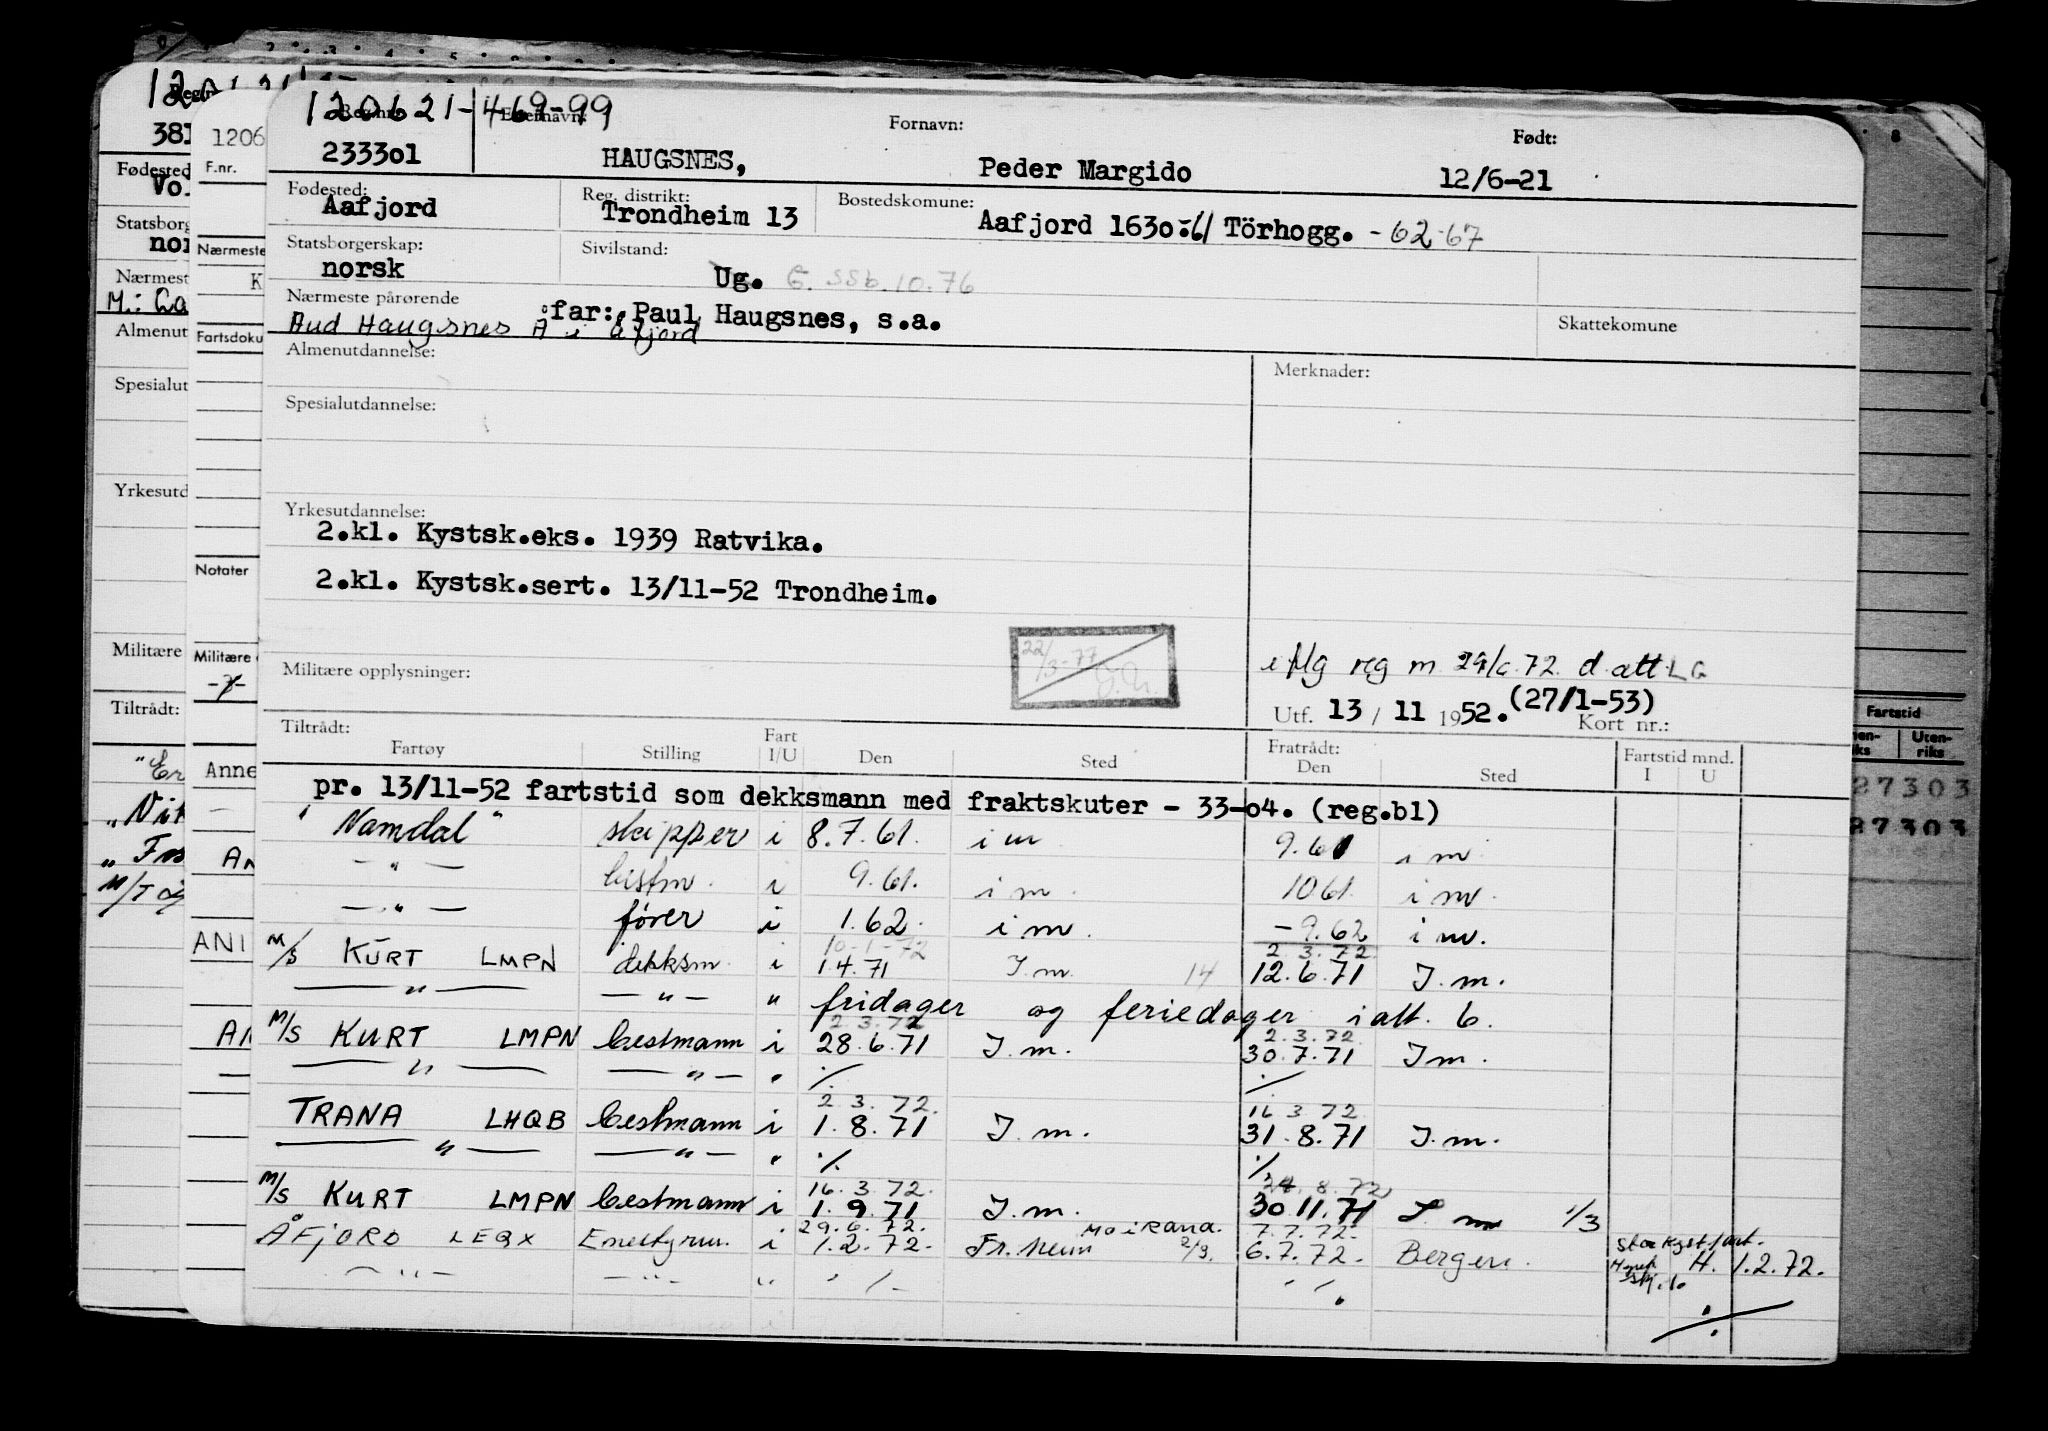 120621-469-99
Reg. nr. Etternavn: Fornavn: Født:
233301 HAUGSNES, Peder Margido 12/6-21
Fødested: Reg. distrikt: Bostedskomune:
Aafjord Trondheim 13 Aafjord 1630-61 Törhogg. - 62-67
Statsborgerskap: Sivilstand:
norsk Ug. G. SSB. 10.76
Nærmeste pårørende
far: Paul Haugsnes, s.a. Skattekomune
Aud Haugsnes Å i Åfjord
Almenutdannelse: Merknader:
Spesialutdannelse:
Yrkesutdannelse:
2.kl. Kystsk.eks. 1939 Ratvika.
2.kl. Kystsk.sert. 13/11-52 Trondheim.
22/3-77
Militære opplysninger: reg m 72. d. att. LG
Utf. 13 / 11 1952. (27/1-53) Kort nr.:
Tiltrådt: Fratrådt: Fartstid mnd.
Fartøy Stilling Fart I/U Den Sted Den Sted I U
pr. 13/11-52 fartstid som dekksmann med fraktskuter - 33-04. (reg.bl)
"Namdal" skipper i 8.7.61. i m 9.61 i m
— " — bestm. i 9.61. i m. 10 61. i m
— " — fører i 1.62 i m. - 9.62 i m.
10-1-72 2.3.72.
M/S KURT LMPN dekksm. i 1.4.71 I.m. 14 12.6.71 I.m.
— " — — " — " fridager og feriedager ialt. 6.
2.3.72 2.3.72.
M/S KURT LMPN bestmann i 28.6.71 I.m. 30.7.71 I m.
— " — — " — " ./. ./.
2 3.72. 16 3 72
TRANA LHQB bestmann i 1.8.71 I.m. 31.8.71 I.m.
— " — — " — " ./. ./.
16.3.72. 8.72
M/S KURT LMPN bestmann i 1.9.71 I.m. 30.11.71 I m 1/3
29.6.72. Mo i Rana. 7.7.72.
ÅFJORD LEQX Enestyrm. i 1.2.72. 2/9. 6.7.72. Bergen. Stor Kystfart.
H. 1.2.72.
— " — — " — " ./. ./.
./.
120621
381
Fødested
Vo
Statsborg
nor
Nærmest
M: Ca
Almenut
Spesialut
Yrkesutd
Militære
Tiltrådt:
"Er
"Vik
M/T
1206
F.nr.
Nærmeste
K
Fartsdoku
Notater
Militære
-7-
Anne
AN
ANI
AN
8
Fartstid
Uten-
riks
27303
27303